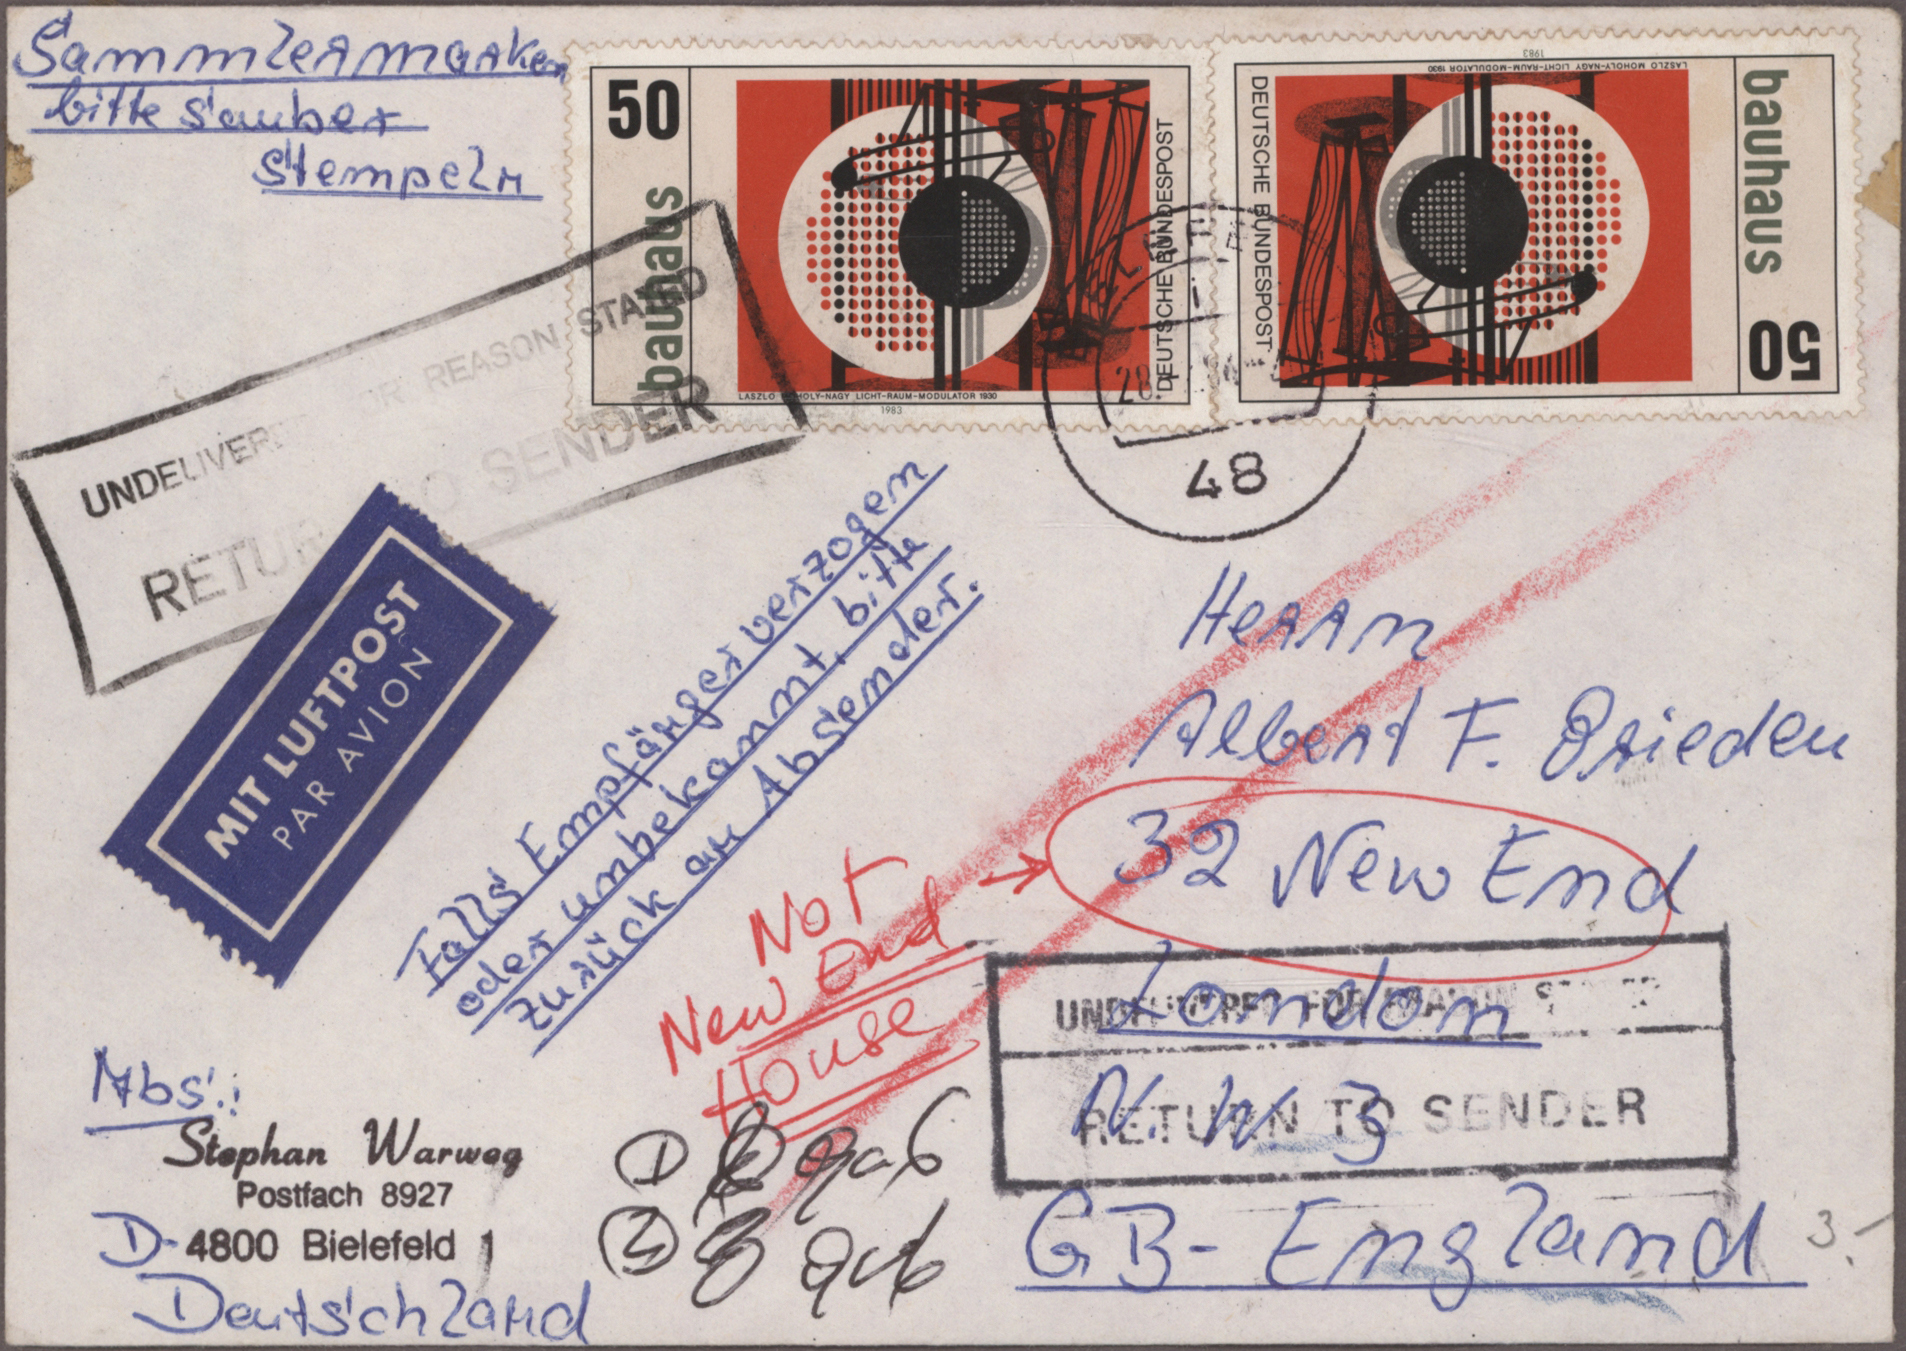 Sammlermarken
bitte sauber
stempeln
50
bauhaus
DEUTSCHE BUNDESPOST
LASZLO MOHOLY-NAGY LICHT-RAUM-MODULATOR 1930
1983
50
bauhaus
DEUTSCHE BUNDESPOST
LASZLO MOHOLY-NAGY LICHT-RAUM-MODULATOR 1930
1983
48
UNDELIVERED FOR REASON STATED
RETURN TO SENDER
MIT LUFTPOST
PAR AVION
Falls Empfänger verzogen
oder unbekannt, bitte
zurück an Absender.
Herrn
Albert F. Brieden
32 New End
London
N.W 3
GB-England
Not
New End
House
UNDELIVERED FOR REASON STATED
RETURN TO SENDER
Abs.:
Stephan Warweg
Postfach 8927
D-4800 Bielefeld 1
Deutschland
3.-